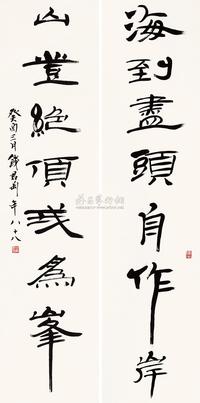 海到盡頭自作岸
山登絕頂我為峯
癸酉三月錢君匋年八十八